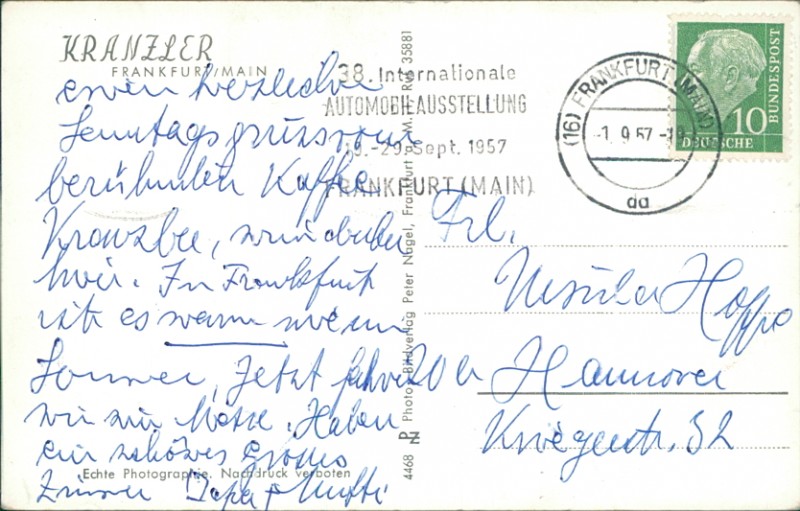 KRANZLER
FRANKFURT/MAIN
einen herzlichen
Sonntagsgruss vom
berühmten Kaffee
Kranzler, senden
wir. In Frankfurt
ist es warm wie im
Sommer, Jetzt fahren
wir zur Messe. Haben
ein schönes großes
Zimmer Papa + Mutti
Echte Photographie. Nachdruck verboten
4468 Photo- u. Bildverlag Peter Nagel, Frankfurt a. M. Ruf 35881
38. Internationale
AUTOMOBILAUSSTELLUNG
19.-29. Sept. 1957
FRANKFURT (MAIN)
(16) FRANKFURT (MAIN)
-1.9.57
da
10
DEUTSCHE
BUNDESPOST
Frl.
Ursula Hoppe
20a Hannover
Kriegerstr. 32